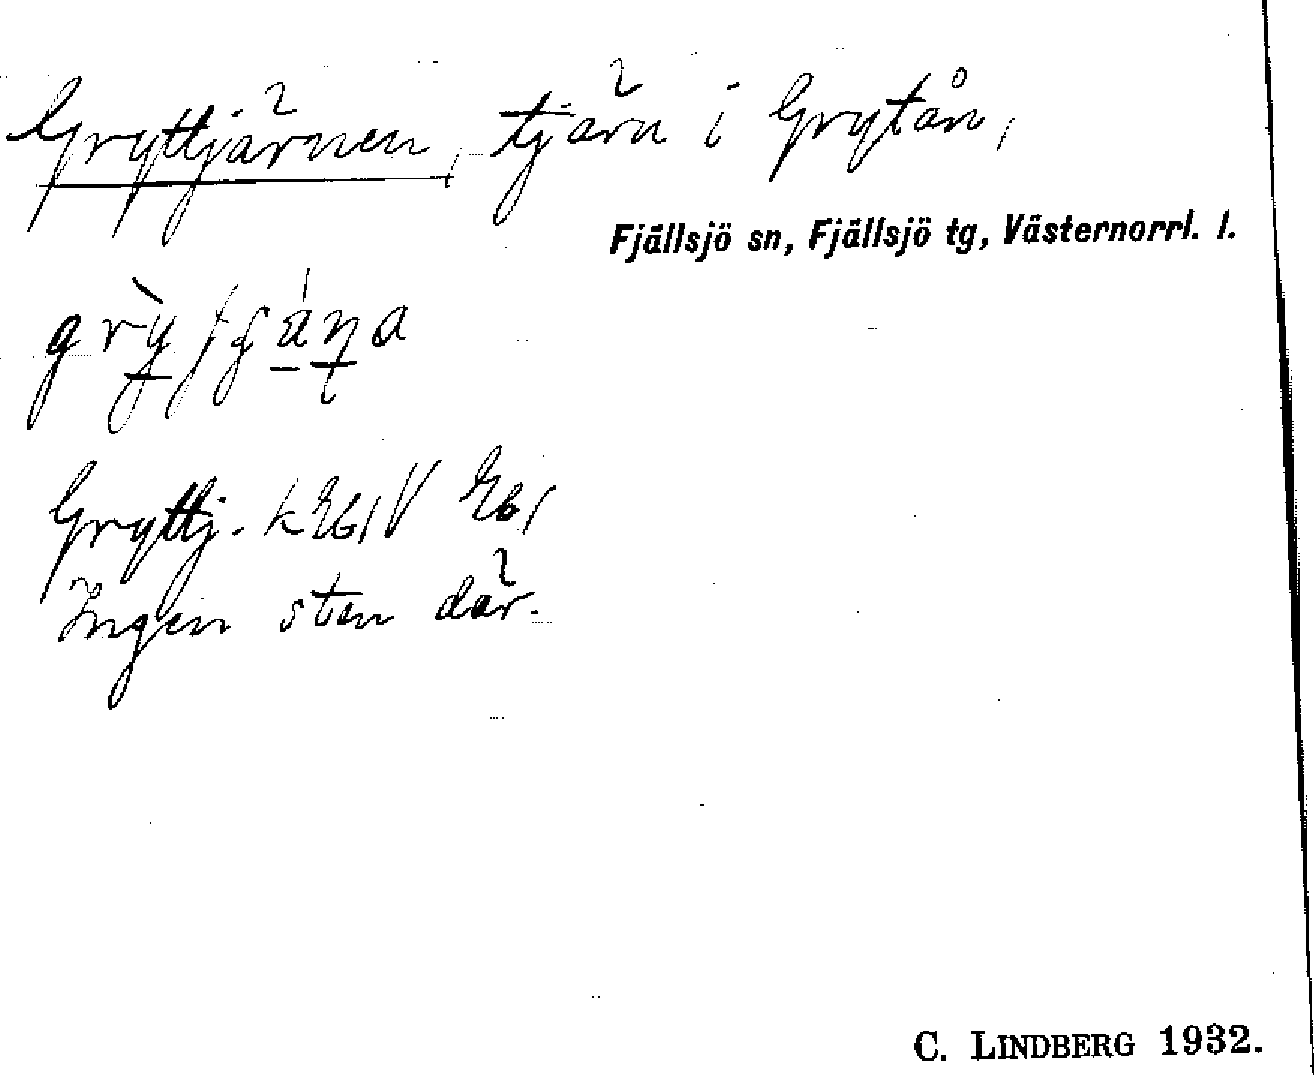 Gryttjärnen, tjärn i Grytån,
Fjällsjö sn, Fjällsjö tg, Västernorrl. l.
Gryttj.
Ingen sten där.
C. LINDBERG 1932.